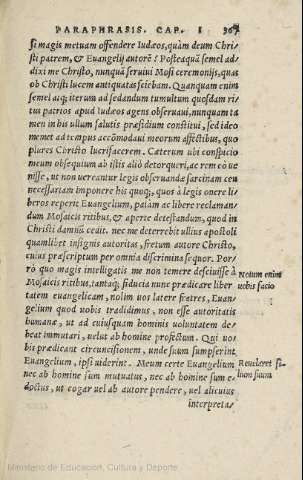 PARAPHRASIS. CAP. I 307
si magis metuam offendere Iudæos, quàm deum Chri/
sti patrem, & Euangelij autorē? Posteaquā semel ad/
dixi me Christo, nunquā seruiui Mosi ceremonijs, quas
ob Christi lucem antiquatas sciebam. Quanquam enim
semel atq; iterum ad sedandum tumultum quosdam ri/
tus patrios apud Iudæos agens obseruaui, nunquam ta
men in his ullum salutis præsidium constitui, sed ideo
memet ad tempus accōmodaui meorum affectibus, quo
plures Christo lucrifacerem. Cæterum ubi conspicio
meum obsequium ab istis aliò detorqueri, ac rem eò ue
nisse, ut non uereantur legis obseruandæ sarcinam ceu
necessariam imponere his quoq;, quos à legis onere li/
beros reperit Euangelium, palàm ac libere reclaman/
dum Mosaicis ritibus, & aperte detestandum, quod in
Christi damnū cedit. nec me deterrebit ullius apostoli
quamlibet insignis autoritas, fretum autore Christo,
cuius præscriptum per omnia discrimina sequor. Por/
rò quo magis intelligatis me non temere desciuisse à
Mosaicis ritibus, tantaq; fiducia nunc prædicare liber
tatem euangelicam, nolim uos latere fratres, Euan/
gelium quod uobis tradidimus, non esse autoritatis
humanæ, ut ad cuiusquam hominis uoluntatem de/
beat immutari, uelut ab homine profectum. Qui uos
bis prædicant circuncisionem, unde suum sumpserint
Euangelium, ipsi uiderint. Meum certe Euangelium
nec ab homine sum mutuatus, nec ab homine sum e/
doctus, ut cogar uel ab autore pendere, uel alicuius
interpreta/
Notum enim
uobis facio
Reuelaret fi/
lium suum
Ministerio de Educación, Cultura y Deporte